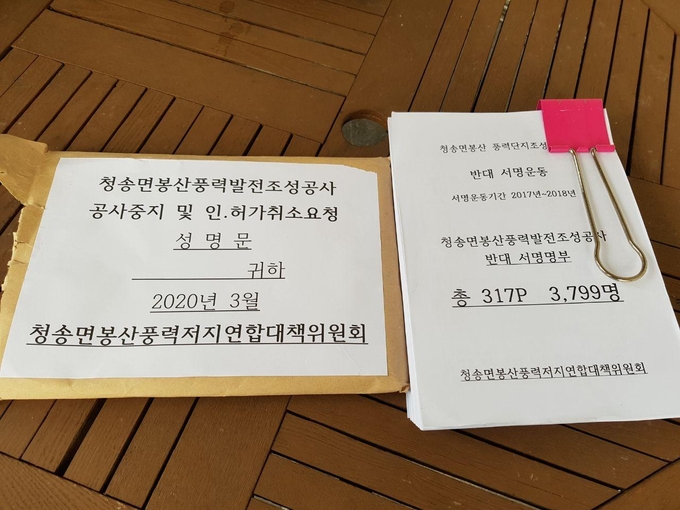 청송면봉산풍력발전조성공사
공사중지 및 인.허가취소요청
성명문
귀하
2020년 3월
청송면봉산풍력저지연합대책위원회
청송면봉산 풍력단지조성
반대 서명운동
서명운동기간 2017년~2018년
청송면봉산풍력발전조성공사
반대 서명명부
총 317P 3,799명
청송면봉산풍력저지연합대책위원회